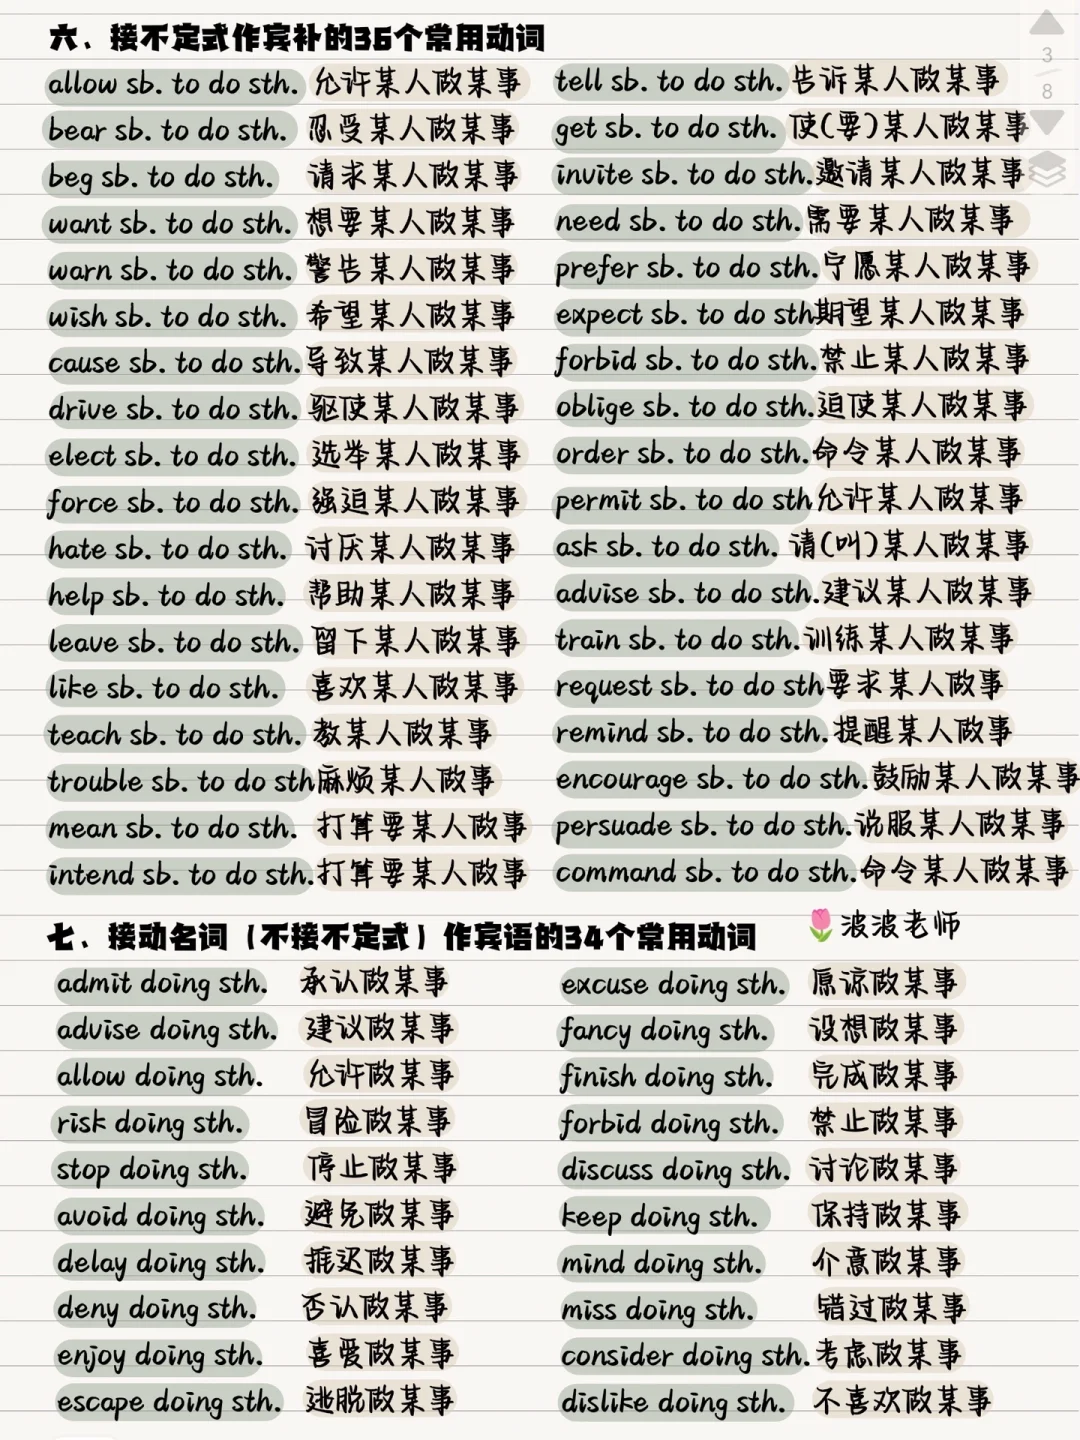 六、接不定式作宾补的36个常用动词
allow sb. to do sth. 允许某人做某事
bear sb. to do sth. 忍受某人做某事
beg sb. to do sth. 请求某人做某事
want sb. to do sth. 想要某人做某事
warn sb. to do sth. 警告某人做某事
wish sb. to do sth. 希望某人做某事
cause sb. to do sth. 导致某人做某事
drive sb. to do sth. 驱使某人做某事
elect sb. to do sth. 选举某人做某事
force sb. to do sth. 强迫某人做某事
hate sb. to do sth. 讨厌某人做某事
help sb. to do sth. 帮助某人做某事
leave sb. to do sth. 留下某人做某事
like sb. to do sth. 喜欢某人做某事
teach sb. to do sth. 教某人做某事
trouble sb. to do sth麻烦某人做事
mean sb. to do sth. 打算要某人做事
intend sb. to do sth.打算要某人做事
tell sb. to do sth.告诉某人做某事
get sb. to do sth. 使(要)某人做某事
invite sb. to do sth.邀请某人做某事
need sb. to do sth.需要某人做某事
prefer sb. to do sth.宁愿某人做某事
expect sb. to do sth期望某人做某事
forbid sb. to do sth.禁止某人做某事
oblige sb. to do sth.迫使某人做某事
order sb. to do sth.命令某人做某事
permit sb. to do sth允许某人做某事
ask sb. to do sth. 请(叫)某人做某事
advise sb. to do sth.建议某人做某事
train sb. to do sth.训练某人做某事
request sb. to do sth要求某人做事
remind sb. to do sth.提醒某人做事
encourage sb. to do sth.鼓励某人做某事
persuade sb. to do sth.说服某人做某事
command sb. to do sth.命令某人做某事
3
8
七、接动名词(不接不定式)作宾语的34个常用动词
波波老师
admit doing sth. 承认做某事
advise doing sth. 建议做某事
allow doing sth. 允许做某事
risk doing sth. 冒险做某事
stop doing sth. 停止做某事
avoid doing sth. 避免做某事
delay doing sth. 推迟做某事
deny doing sth. 否认做某事
enjoy doing sth. 喜爱做某事
escape doing sth. 逃脱做某事
excuse doing sth. 原谅做某事
fancy doing sth. 设想做某事
finish doing sth. 完成做某事
forbid doing sth. 禁止做某事
discuss doing sth. 讨论做某事
keep doing sth. 保持做某事
mind doing sth. 介意做某事
miss doing sth. 错过做某事
consider doing sth.考虑做某事
dislike doing sth. 不喜欢做某事